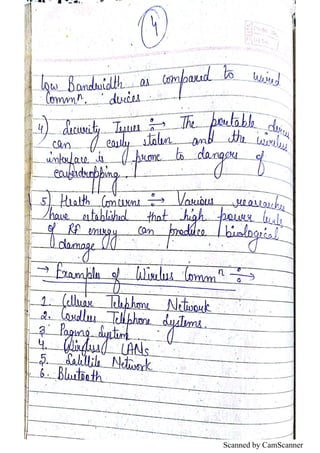 4
low Bandwidth as compared to wired
Commn. devices
4) Security Issues :→ The portable devices
can easily stolen and the wireless
interface is prone to dangers of
eavesdropping.
5) Health Concerns :→ Various researches
have established that high power levels
of RF energy can produce biological
damage
→ Examples of Wireless Commn :→
1. Celluar Telephone Network
2. Cordless Telephone Systems.
3. Paging System
4. Wireless LANs
5. Satellite Network
6. Bluetooth
Scanned by CamScanner